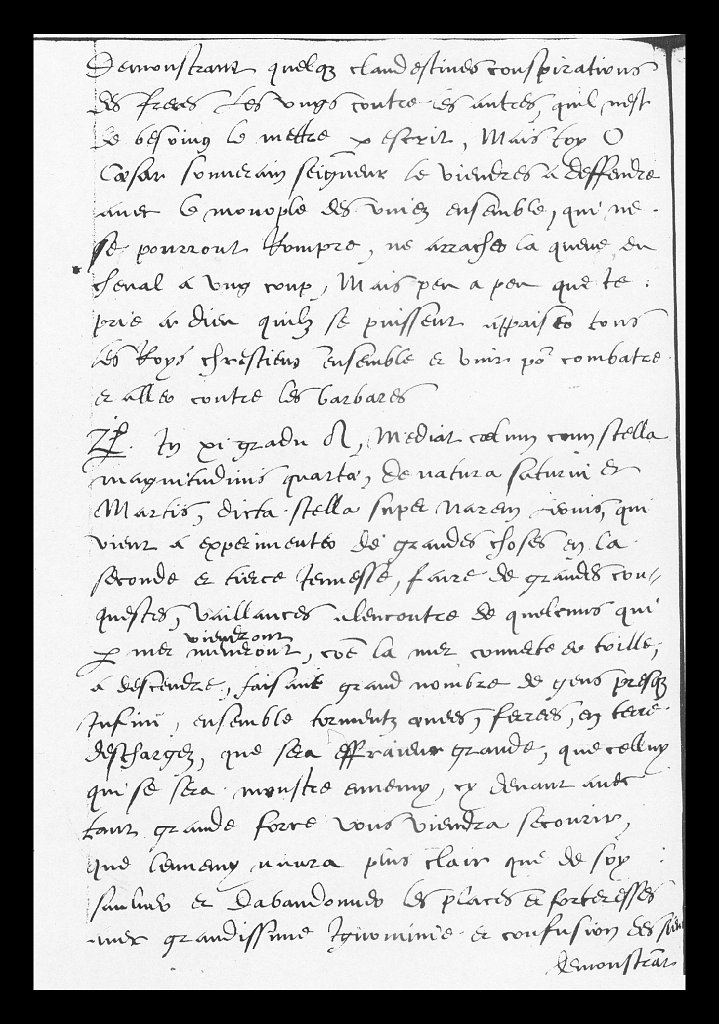 Demonstrant quelqz clandestines conspirations
des freres les ungs contre les autres, quil nest
de besoing le mettre p escrit, Mais toy O
Cæsar souverain seigneur le viendres a deffendre
avec le monople des uniez ensemble, qui ne
se pourront Rompre, ne arraches la queue du
cheval a ung coup, Mais peu a peu que ie
prie a dieu quilz se puissent appaiser tous
les Roys chrestiens ensemble et unir po combatre
et aller contre les barbares
In xi gradu ♌, Mediat cælum cum stella
magnitudinis quartæ, de natura saturni et
Martis, dicta stella super Narem Leonis, qui
vient a experimenter de grandes choses en la
seconde et tierce Jeunesse, faire de grandes con-
questes, vaillances alencontre de quelcuns qui
viendront
p mer viendront, coe la mer couverte de toille,
a descendre, faisant grand nombre de gens presqz
Infini, ensemble tormentz armes, ferees, en terre
deschargez, que sera effraieur grande, que celluy
qui se sera monstre ennemy, cy devant avec
tant grande force vous viendra secourir,
que lennemy naura plus clair que de soy
saulver et dabandonner les places et forteresses
avec grandissime Ignominie et confusion des siens
demonstrat